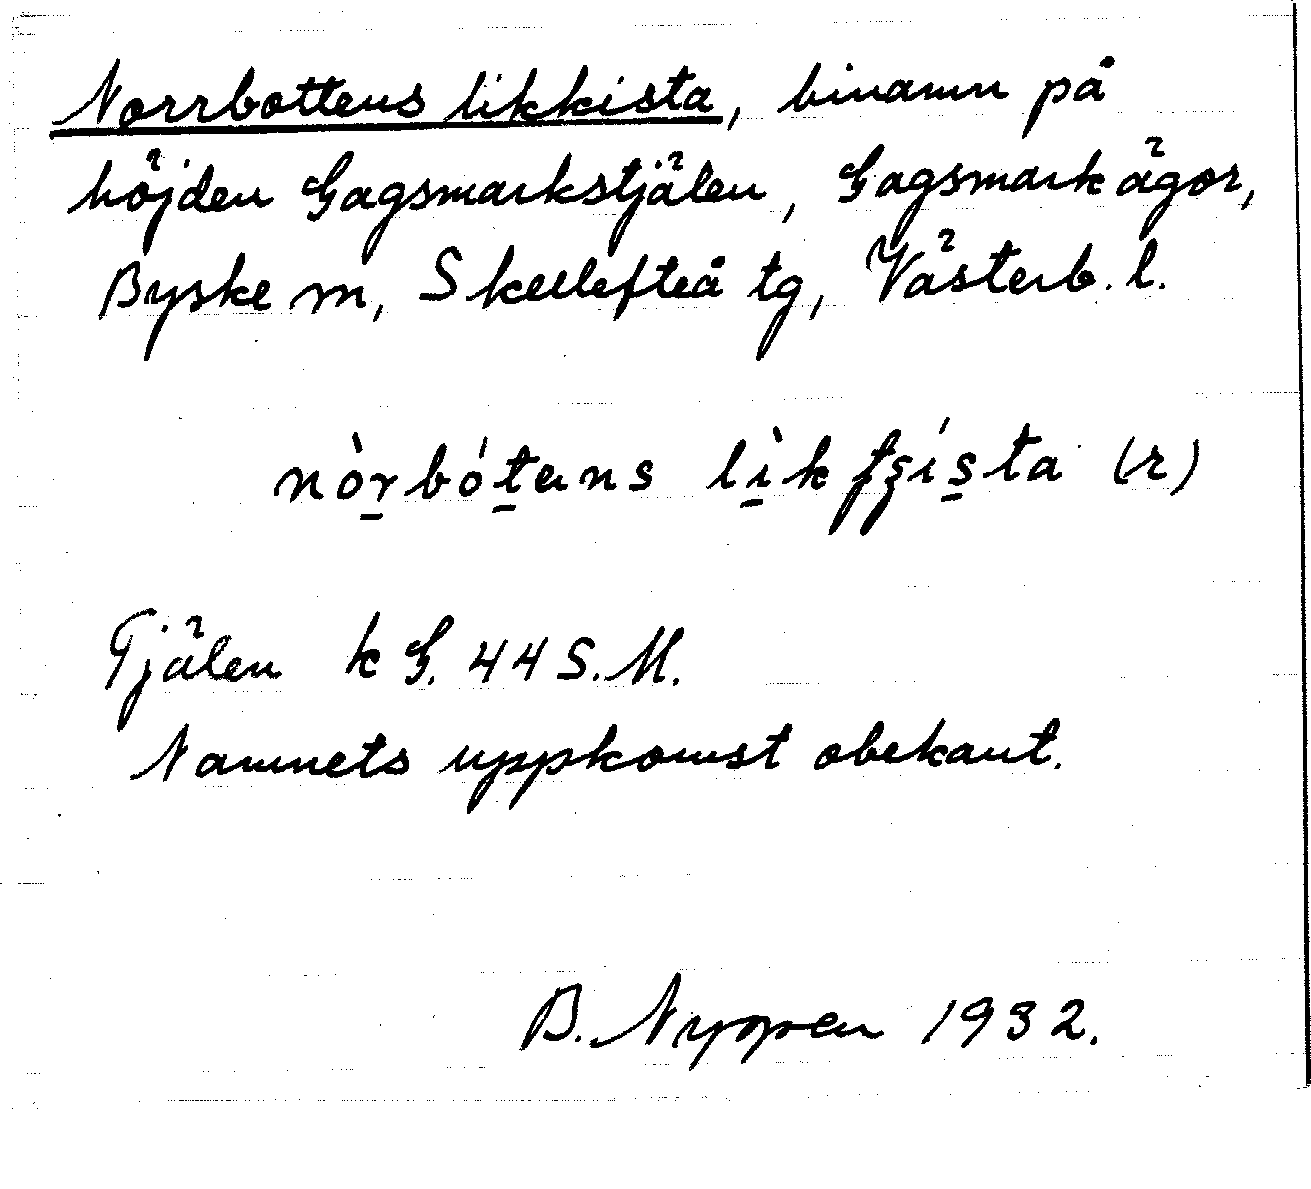 Norrbottens likkista, binamn på
höjden Gagsmarkstjälen, Gagsmark ägor,
Byske sn, Skellefteå tg, Västerb. l.
nòrbótens lìk ísta (r)
Tjälen k G. 44 S.M.
Namnets uppkomst obekant.
B. Nygren 1932.